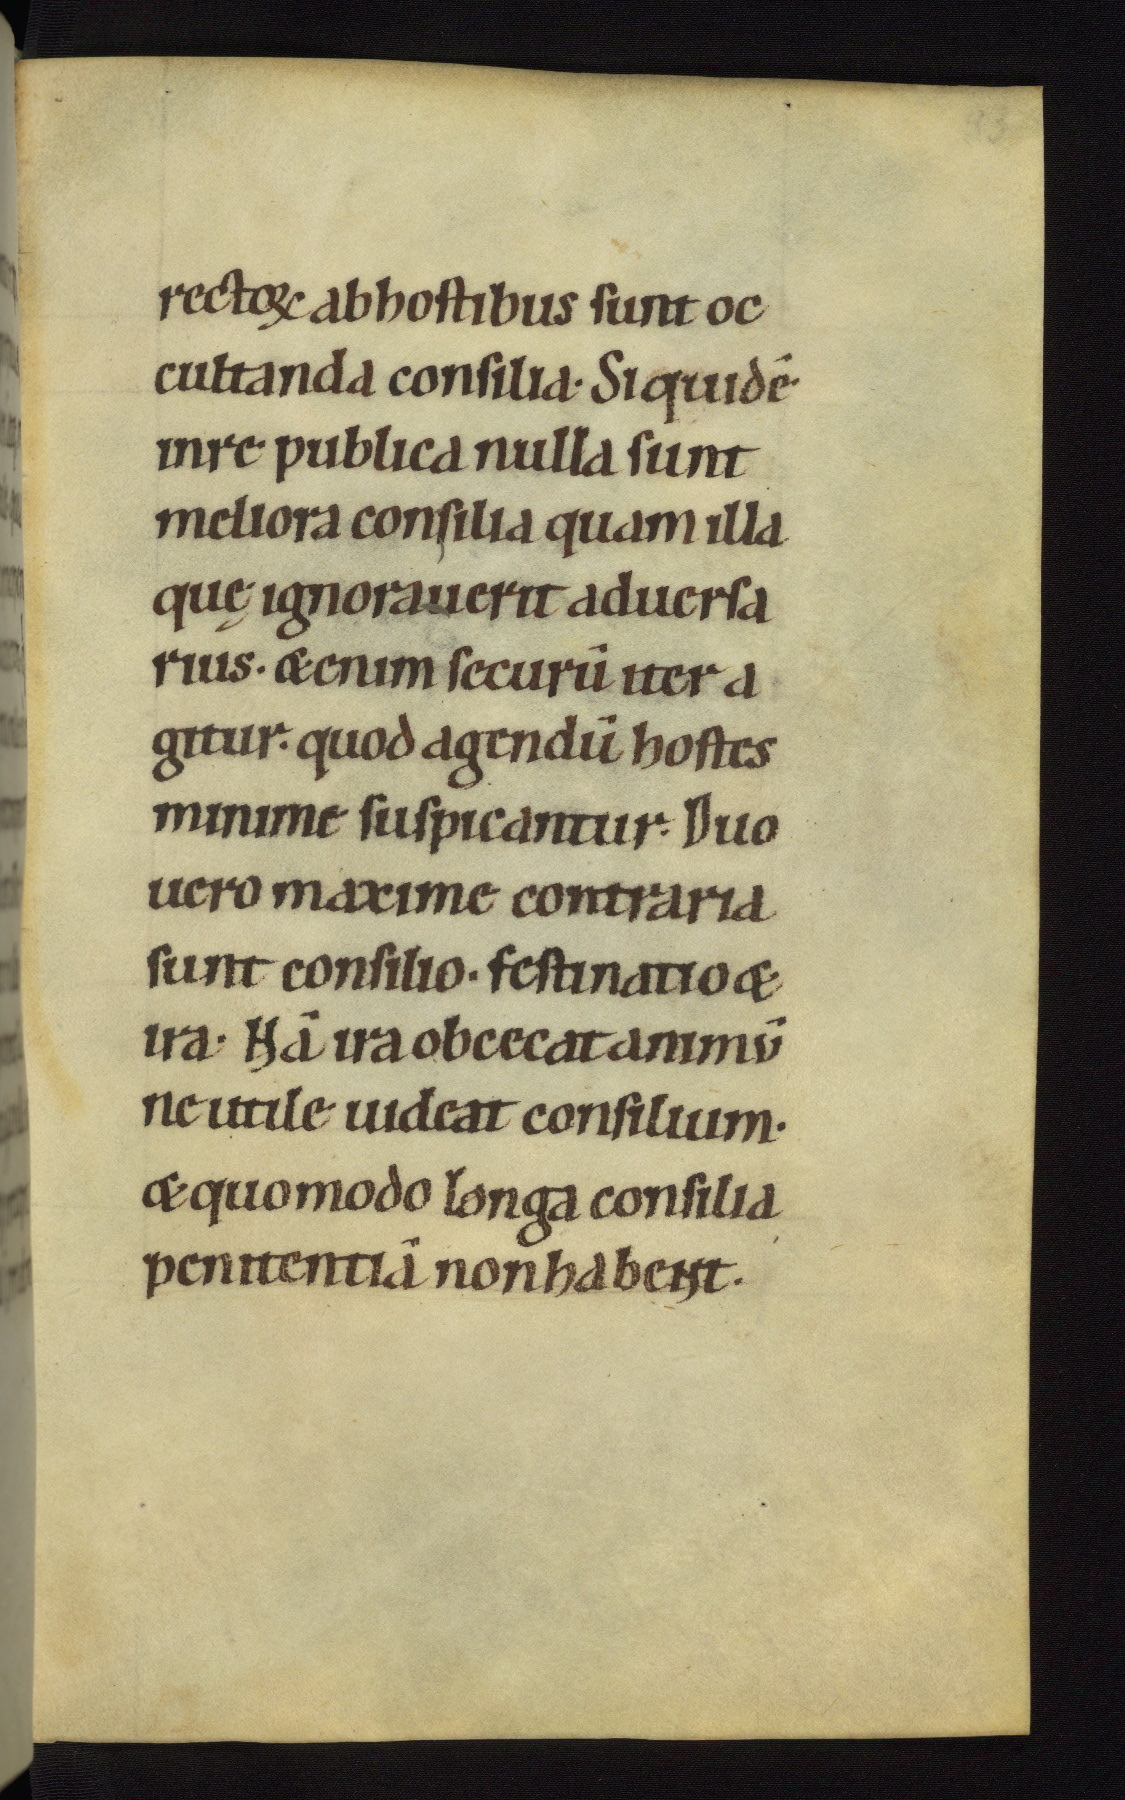 rectoꝝ ab hostibus sunt oc
cultanda consilia· Siquidē
in re publica nulla sunt
meliora consilia quam illa
quę ignorauerit aduersa
rius· & enim securū iter a
gitur· quod agendū hostes
minime suspicantur· Duo
uero maxime contraria
sunt consilio· festinatio &
ira· Nā ira obcecat animū
ne utile uideat consilium·
& quomodo longa consilia
penitentiā non habent·